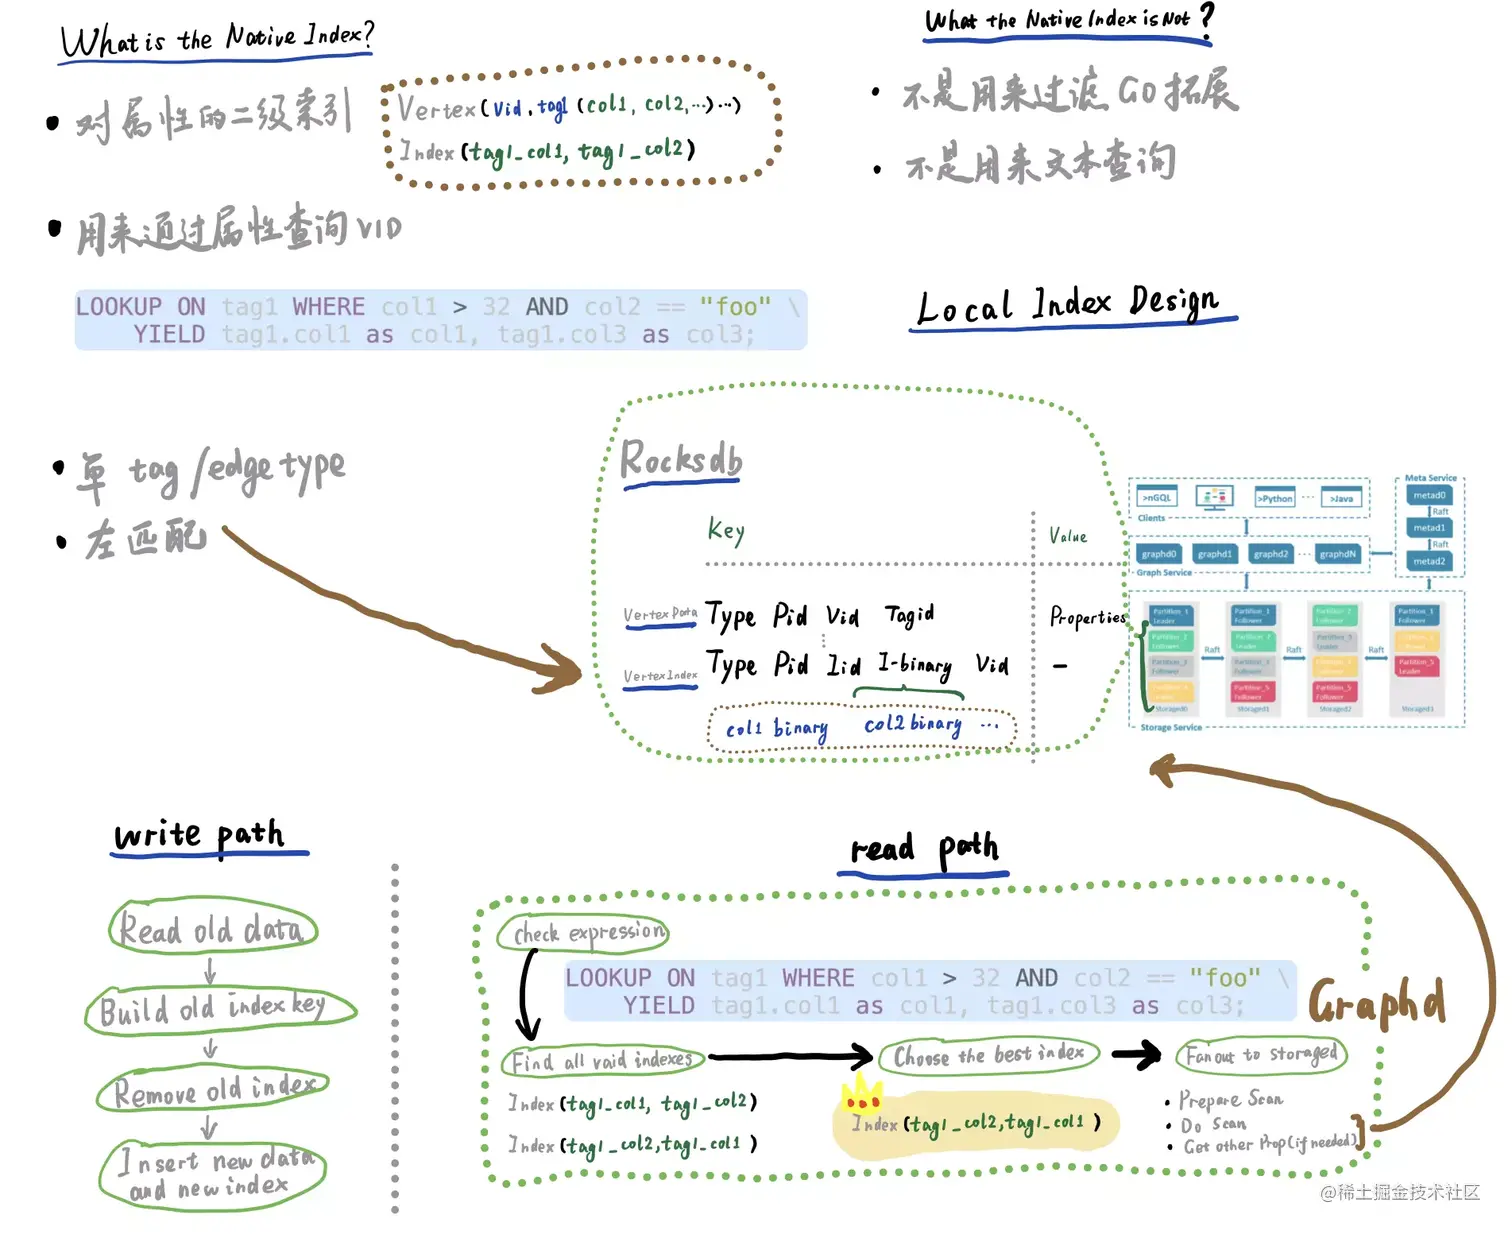 What is the Native Index?
对属性的二级索引
Vertex(Vid, tag1 (col1, col2, ...) ...)
Index(tag1_col1, tag1_col2)
用来通过属性查询 VID
LOOKUP ON tag1 WHERE col1 > 32 AND col2 == "foo" \
YIELD tag1.col1 as col1, tag1.col3 as col3;
What the Native Index is Not?
不是用来过滤 GO 拓展
不是用来文本查询
Local Index Design
单 tag/edge type
左匹配
Rocksdb
Key
Value
Vertex Data
Type Pid Vid Tagid
Properties
Vertex Index
Type Pid Iid I-binary Vid
-
col1 binary col2 binary ...
>nGQL
>Python
...
>Java
Clients
Meta Service
metad0
Raft
metad1
Raft
metad2
graphd0
graphd1
graphd2
...
graphdN
Graph Service
Partition_1
Leader
Partition_1
Follower
Partition_1
Follower
Leader
Follower
Leader
Follower
Follower
Follower
Partition_5
Follower
Partition_5
Follower
Partition_5
Leader
Raft
Raft
Raft
Storaged0
Storaged1
Storaged2
Storaged3
Storage Service
write path
Read old data
Build old index key
Remove old index
Insert new data
and new index
read path
check expression
LOOKUP ON tag1 WHERE col1 > 32 AND col2 == "foo" \
YIELD tag1.col1 as col1, tag1.col3 as col3;
Graphd
Find all vaid indexes
Index(tag1_col1, tag1_col2)
Index(tag1_col2, tag1_col1)
Choose the best index
Index(tag1_col2, tag1_col1)
Fan out to storaged
Prepare Scan
Do Scan
Get other Prop(if needed)
@稀土掘金技术社区